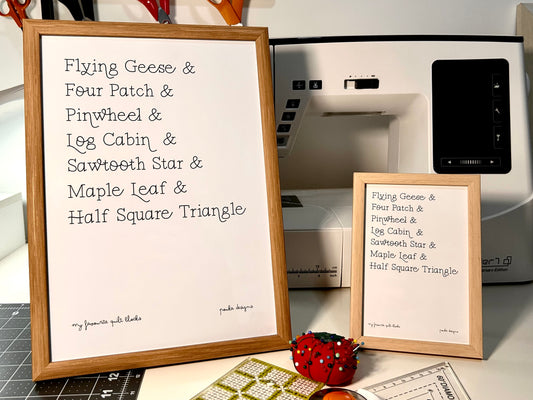 Flying Geese &
Four Patch &
Pinwheel &
Log Cabin &
Sawtooth Star &
Maple Leaf &
Half Square Triangle
my favourite quilt blocks
Flying Geese &
Four Patch &
Pinwheel &
Log Cabin &
Sawtooth Star &
Maple Leaf &
Half Square Triangle
my favourite quilt blocks
11
12